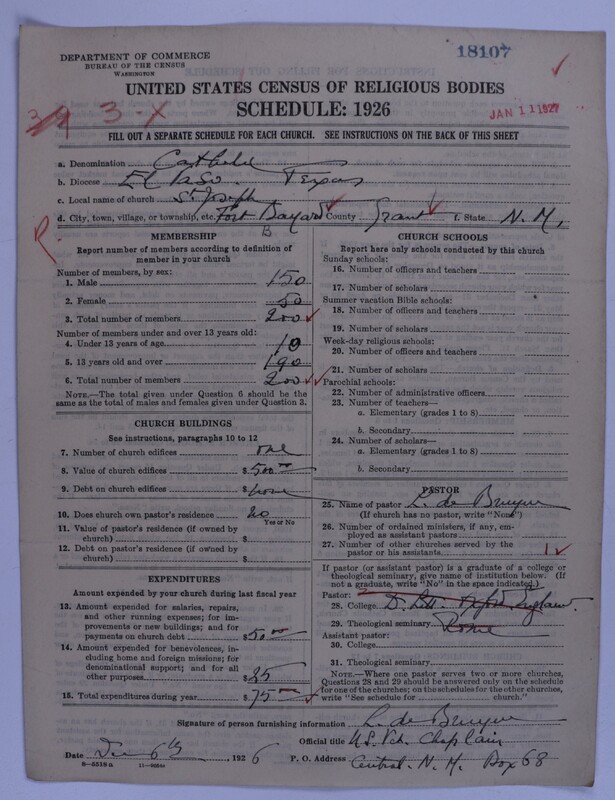 18107
DEPARTMENT OF COMMERCE
BUREAU OF THE CENSUS
WASHINGTON
UNITED STATES CENSUS OF RELIGIOUS BODIES
SCHEDULE: 1926
JAN 11 1927
3-X
FILL OUT A SEPARATE SCHEDULE FOR EACH CHURCH. SEE INSTRUCTIONS ON THE BACK OF THIS SHEET
a. Denomination Catholic
b. Diocese El Paso. Texas
c. Local name of church St. Joseph
d. City, town, village, or township, etc. Fort Bayard County Grant f. State N. M.
R
B
MEMBERSHIP
Report number of members according to definition of
member in your church
Number of members, by sex:
1. Male 150
2. Female 50
3. Total number of members 200
Number of members under and over 13 years old:
4. Under 13 years of age 10
5. 13 years old and over 190
6. Total number of members 200
NOTE.—The total given under Question 6 should be the
same as the total of males and females given under Question 3.
CHURCH BUILDINGS
See instructions, paragraphs 10 to 12
7. Number of church edifices one
8. Value of church edifices $ 500.00
9. Debt on church edifices $ none
10. Does church own pastor's residence? no
Yes or No
11. Value of pastor's residence (if owned by
church) $
12. Debt on pastor's residence (if owned by
church) $
EXPENDITURES
Amount expended by your church during last fiscal year
13. Amount expended for salaries, repairs,
and other running expenses; for im-
provements or new buildings; and for
payments on church debt $ 50.00
14. Amount expended for benevolences, in-
cluding home and foreign missions; for
denominational support; and for all
other purposes $ 25
15. Total expenditures during year $ 75
CHURCH SCHOOLS
Report here only schools conducted by this church
Sunday schools:
16. Number of officers and teachers
17. Number of scholars
Summer vacation Bible schools:
18. Number of officers and teachers
19. Number of scholars
Week-day religious schools:
20. Number of officers and teachers
21. Number of scholars
Parochial schools:
22. Number of administrative officers
23. Number of teachers—
a. Elementary (grades 1 to 8)
b. Secondary
24. Number of scholars—
a. Elementary (grades 1 to 8)
b. Secondary
PASTOR
25. Name of pastor L. de Bruyn
(If church has no pastor, write "None")
26. Number of ordained ministers, if any, em-
ployed as assistant pastors
27. Number of other churches served by the
pastor or his assistants 1
If pastor (or assistant pastor) is a graduate of a college or
theological seminary, give name of institution below. (If
not a graduate, write "No" in the space indicated.)
Pastor:
28. College D. Litt. Oxford England.
29. Theological seminary Rome
Assistant pastor:
30. College
31. Theological seminary
NOTE.—Where one pastor serves two or more churches,
Questions 28 and 29 should be answered only on the schedule
for one of the churches; on the schedules for the other churches,
write "See schedule for church."
Signature of person furnishing information L. de Bruyn
Official title U.S. Vet. Chaplain
Date Dec 6th, 1926 P. O. Address Central. N. M. Box 68